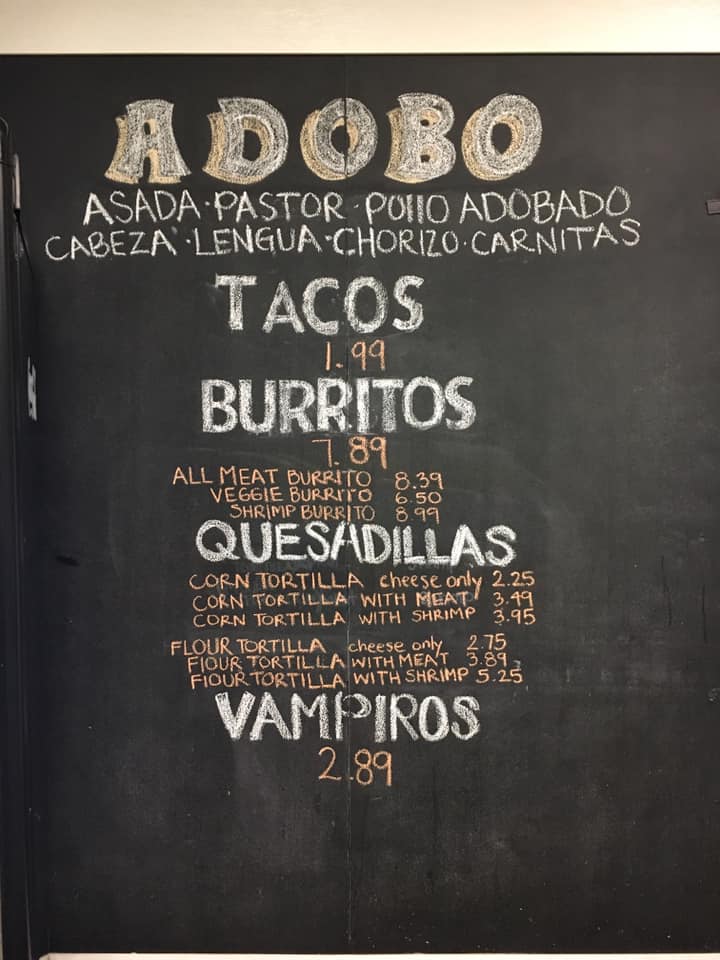 ADOBO
ASADA·PASTOR·POllO ADOBADO
CABEZA·LENGUA·CHORIZO·CARNITAS
TACOS
1.99
BURRITOS
7.89
ALL MEAT BURRITO 8.39
VEGGIE BURRITO 6.50
SHRIMP BURRITO 8.99
QUESADILLAS
CORN TORTILLA cheese only 2.25
CORN TORTILLA WITH MEAT 3.49
CORN TORTILLA WITH SHRIMP 3.95
FLOUR TORTILLA cheese only 2.75
FlOUR TORTILLA WITH MEAT 3.89
FlOUR TORTILLA WITH SHRIMP 5.25
VAMPIROS
2.89